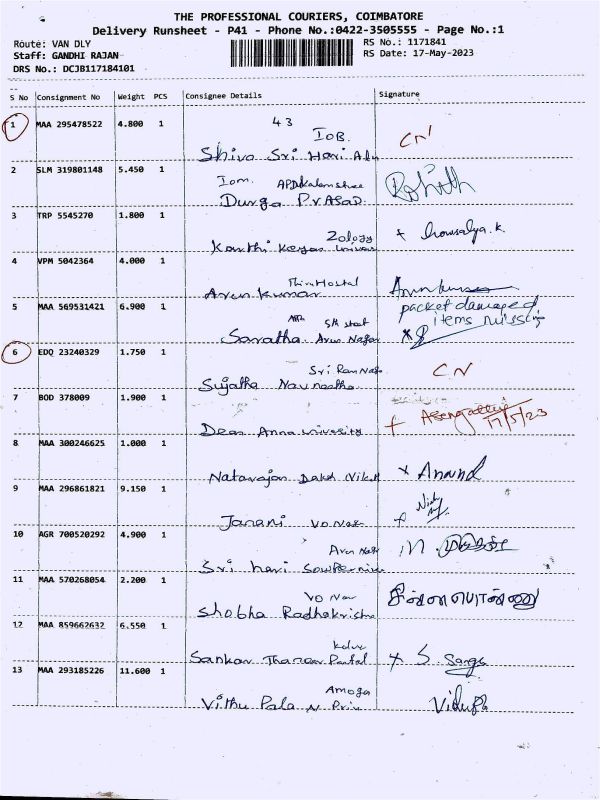 THE PROFESSIONAL COURIERS, COIMBATORE
Delivery Runsheet - P41 - Phone No.:0422-3505555 - Page No.:1
Route: VAN DLY
RS No.: 1171841
Staff: GANDHI RAJAN
RS Date: 17-May-2023
DRS No.: DCJB117184101
S No Consignment No Weight PCS Consignee Details Signature
1 MAA 295478522 4.800 1 43
IOB.
Shiva Sri Hari CN
2 SLM 319801148 5.450 1
Durga Prasad.
3 TRP 5545270 1.800 1
Zology
Kowsalya.k.
4 VPM 5042364 4.000 1
Arun kumar
5 MAA 569531421 6.900 1
packet damaged
items missing
Saratha Arun Nagar
6 EDQ 23240329 1.750 1 CN
Sri Ram Nagar
Sujatha
7 BOD 378009 1.900 1
17/5/23
Dean Anna University
8 MAA 300246625 1.000 1
Natarajan x Anand
9 MAA 296861821 9.150 1
Janani VO Nagar
10 AGR 700520292 4.900 1
Sri hari
11 MAA 570268054 2.200 1
சின்னபொண்ணு
Shobha Radhakrishna
12 MAA 859662632 6.550 1
Sankar
13 MAA 293185226 11.600 1
Amoga
Vithu Pala N Priya